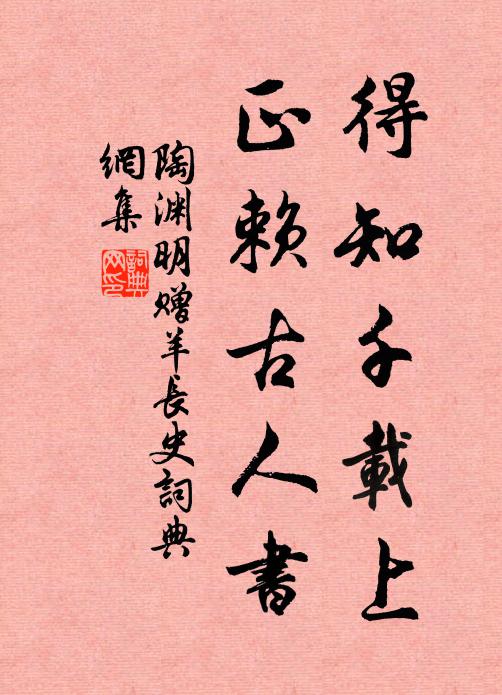 得知千載上
正賴古人書
陶渊明赠羊長史詞典
網集
詞典
网印